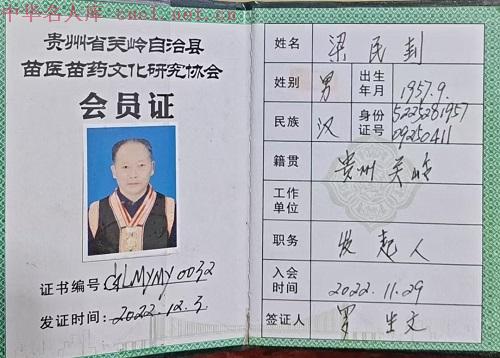 中华名人库
贵州省关岭自治县
苗医苗药文化研究协会
会员证
证书编号: GLMYMY0032
发证时间: 2022.12.3
姓名 梁民刲
性别 男 出生年月 1957.9.
民族 汉 身份证号 522528195709250411
籍贯 贵州关岭
工作单位
职务 发起人
入会时间 2022.11.29
签证人 罗生文